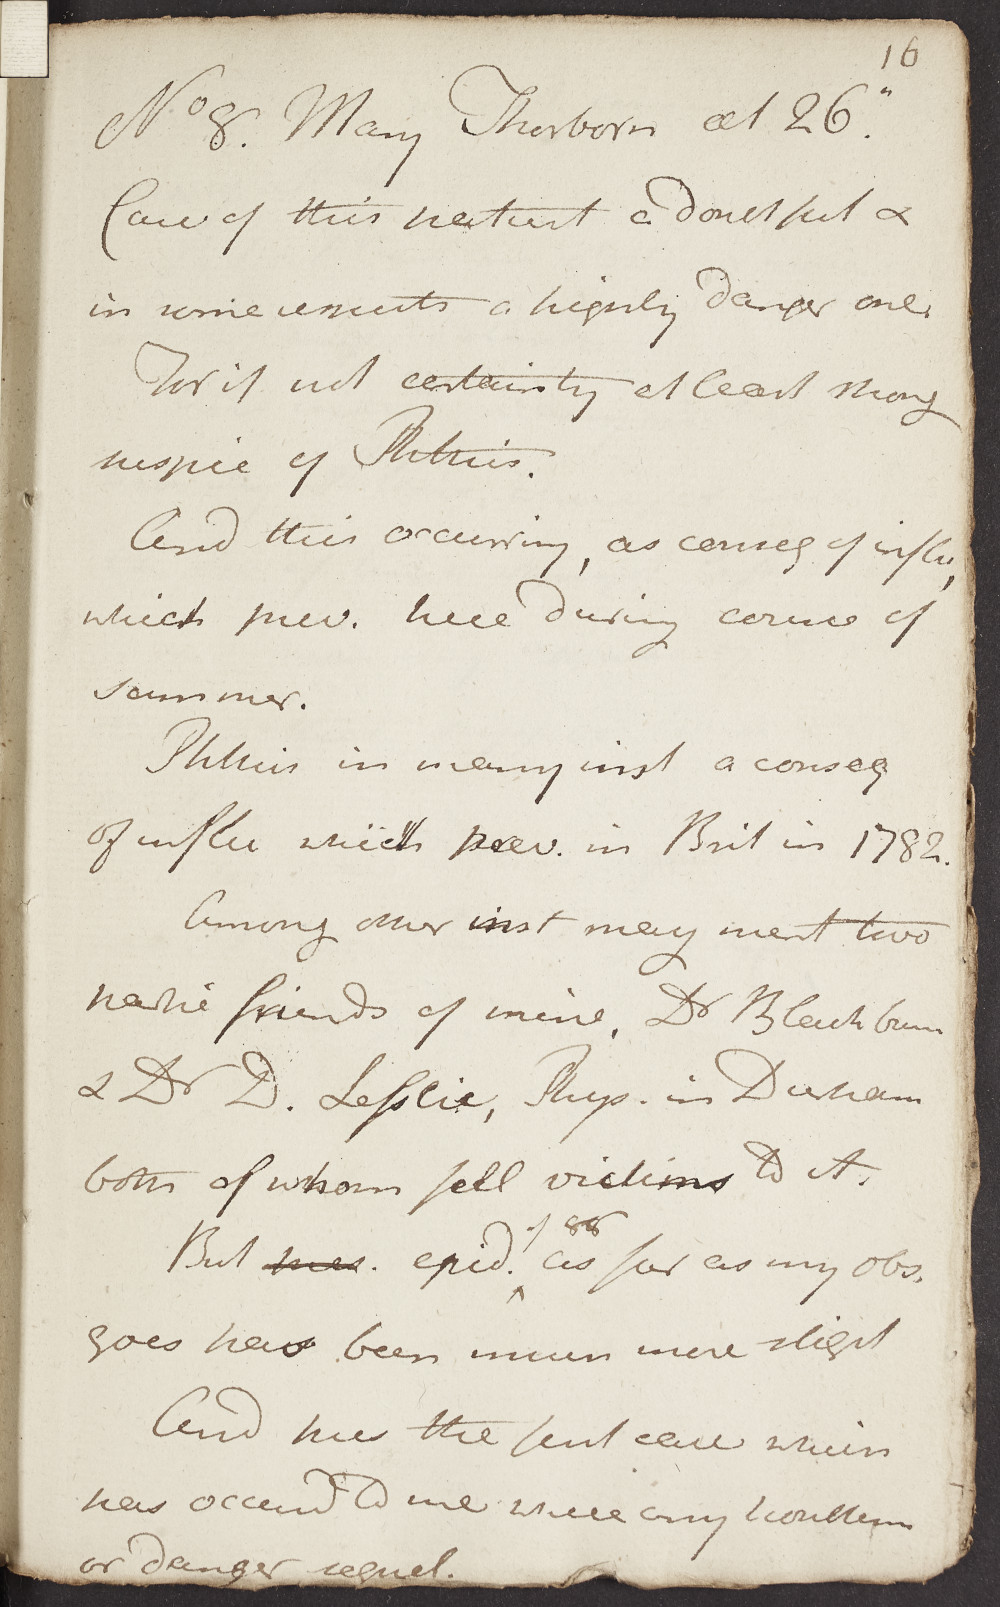 16
No 8. Mary Thorborn æt 26.
Case of this nature a doubtful &
in some respects a highly danger one.
For if not certainty at least strong
suspic of Phthisis.
And this occurring, as conseq of influ,
which prev. here during course of
summer.
Phthisis in many inst a conseq
of influ which prev. in Brit in 1782.
Among other inst may ment two
partic friends of mine, Dr Blackburn
& Dr D. Leslie, Phys. in Durham
both of whom fell victims to it.
But pres. epid. of 88 as far as my obs.
goes has been much more slight
And this the first case which
has occurrd to me where any troublesom
or danger sequel.